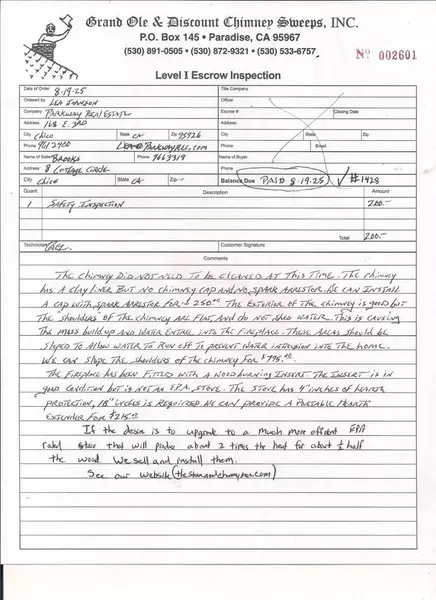 Grand Ole & Discount Chimney Sweeps, INC.
P.O. Box 145 • Paradise, CA 95967
(530) 891-0505 • (530) 872-9321 • (530) 533-6757
No 002601
Level I Escrow Inspection
Date of Order 8-19-25
Title Company
Ordered by Lea Johnson
Officer
Company Parkway Real Estate
Escrow #
Closing Date
Address 168 E. 3rd
Address
City Chico State CA Zip 95926
City State Zip
Phone 9612400
Phone Email
Name of Seller Brooks Phone 9663319
Name of Buyer
Address 8 Cottage Circle
Phone
City Chico State CA Zip
Balance Due PAID 8-19-25 ✓ #1428
Quant. Description Amount
1 Safety Inspection 200.-
Total 200.-
Technician
Customer Signature
Comments
The chimney did not need to be cleaned at this time. The chimney
has a clay liner but no chimney cap and no spark arrestor. We can install
a cap with spark arrestor for $250.00. The exterior of the chimney is good but
the "shoulders" of the chimney are flat, and do not shed water. This is causing
the moss build up and water entree into the fireplace. These areas should be
sloped to allow water to run off to prevent water intrusion into the home.
We can slope the shoulders of the chimney for $795.00
The fireplace has been fitted with a woodburning insert. The insert is in
good condition but is not an E.P.A. stove. The stove has 4" inches of hearth
protection, 18" inches is required. We can provide a portable hearth
extender for $215.00
If the desire is to upgrade to a much more efficient EPA
rated stove that will produce about 2 times the heat for about ½ half
the wood. We sell and install them.
See our website (thestoveandchimneypros.com)